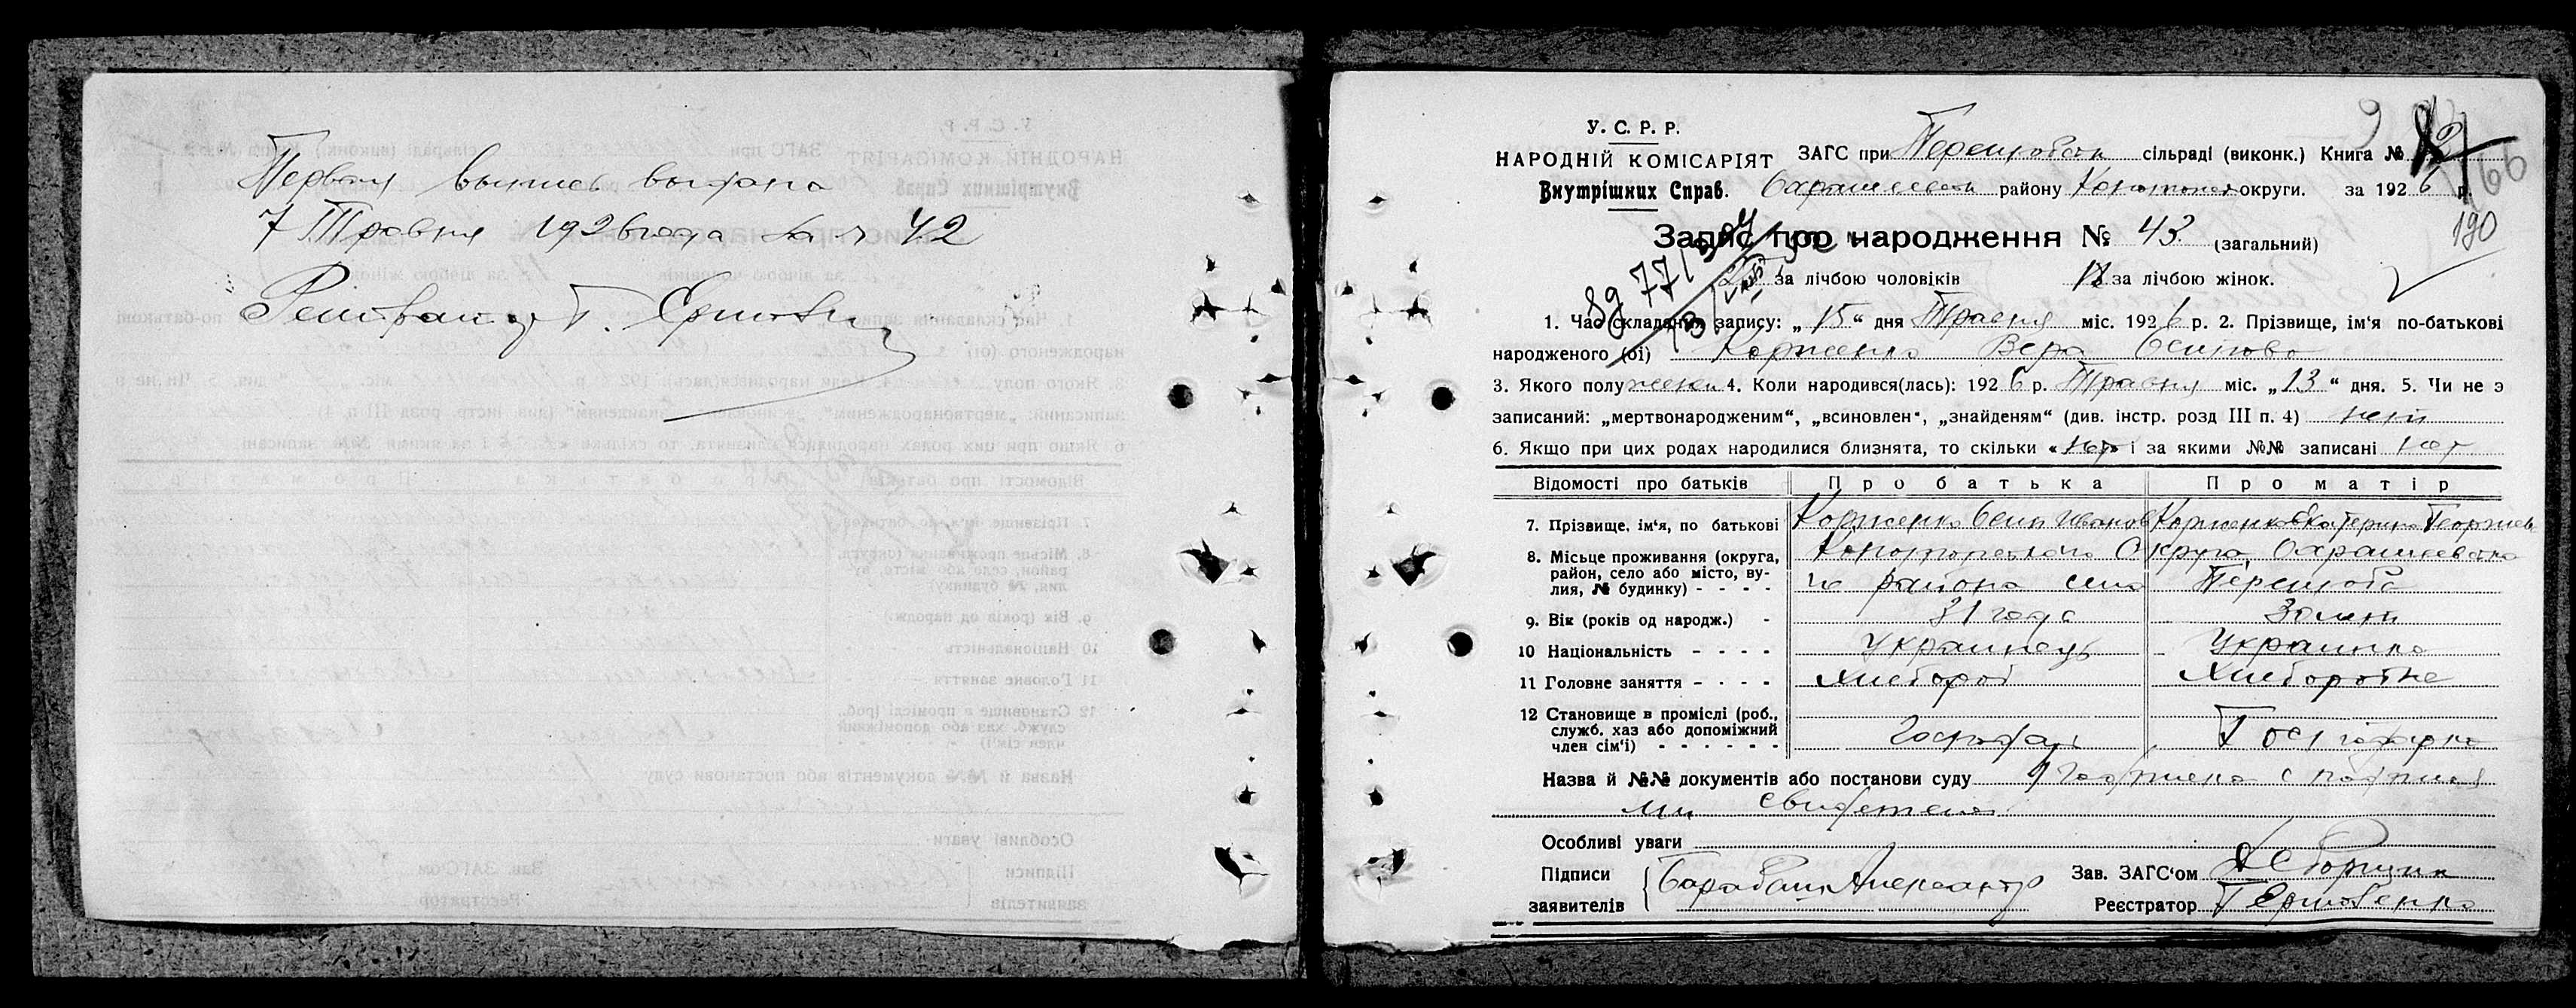 Первая выпись выдана
7 Травня 1926 года за № 42
Реистратор Г. Єрмов
У. С. Р. Р.
НАРОДНІЙ КОМІСАРІЯТ
Внутрішних Справ.
ЗАГС при сільраді (виконк.) Книга №
району округи. за 1926 р.
190
Запис про народження № 43 (загальний)
за лічбою чоловіків за лічбою жінок.
1. Час складання запису: „15“ дня Травня міс. 1926 р. 2. Прізвище, ім‘я по-батькові
народженого (ої) Корженко Вера Осипово
3. Якого полу жен 4. Коли народився(лась): 1926 р. Травня міс. „13“ дня. 5. Чи не э
записаний: „мертвонародженим“, „всиновлен“, „знайденям“ (див. інстр. розд III п. 4) нет
6. Якщо при цих родах народилися близнята, то скільки «нет» і за якими №№ записані нет
Відомості про батьків Про батька Про матір
7. Прізвище, ім‘я, по батькові Корженко Осип Иванов Корженкова Катерина Георгиев
8. Місьце проживання (округа, район, село або місто, вулия, № будинку) - - - - Конотопского Округа
го района села
9. Вік (років од народж.) - 31 года 30 лет
10 Національність - - - - Украинець Украинка
11 Головне заняття - - - - Хлебороб Хлеборобка
12 Становище в проміслі (роб., служб. хаз або допоміжний член сім‘і) - - - - - - Господар Господарка
Назва й №№ документів або постанови суду с подпися
ми свидетеля
Особливі уваги
Підписи заявителів Барабаш Александр
Зав. ЗАГС‘ом
Реєстратор Г Єрмоленко